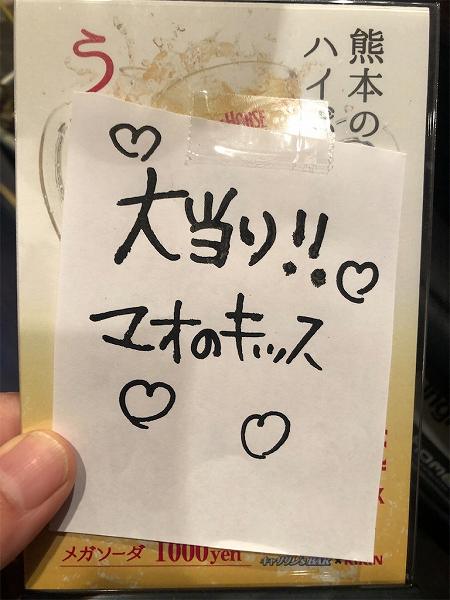 熊本の
ハイ
う
大当り!!
マオのキッス
メガソーダ 1000yen